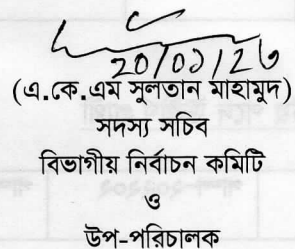 20/01/26
(এ.কে.এম সুলতান মাহামুদ)
সদস্য সচিব
বিভাগীয় নির্বাচন কমিটি
ও
উপ-পরিচালক